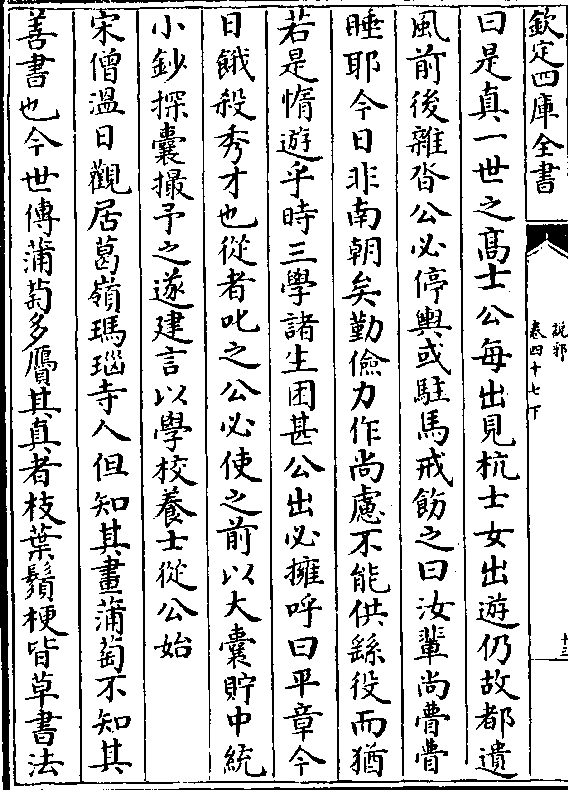 欽定四庫全書
說郛
卷四十七下
十三
曰是真一世之髙士公每出見杭士女出遊仍故都遺
風前後雜沓公必停輿或駐馬戒飭之曰汝輩尚瞢瞢
睡耶今日非南朝矣勤儉力作尚慮不能供繇役而猶
若是惰遊乎時三學諸生困甚公出必擁呼曰平章今
日餓殺秀才也從者叱之公必使之前以大囊貯中統
小鈔探囊撮予之遂建言以學校養士從公始
宋僧温日觀居葛嶺瑪瑙寺人但知其畫蒲萄不知其
善書也今世傳蒲萄多贋其真者枝葉鬚梗皆草書法